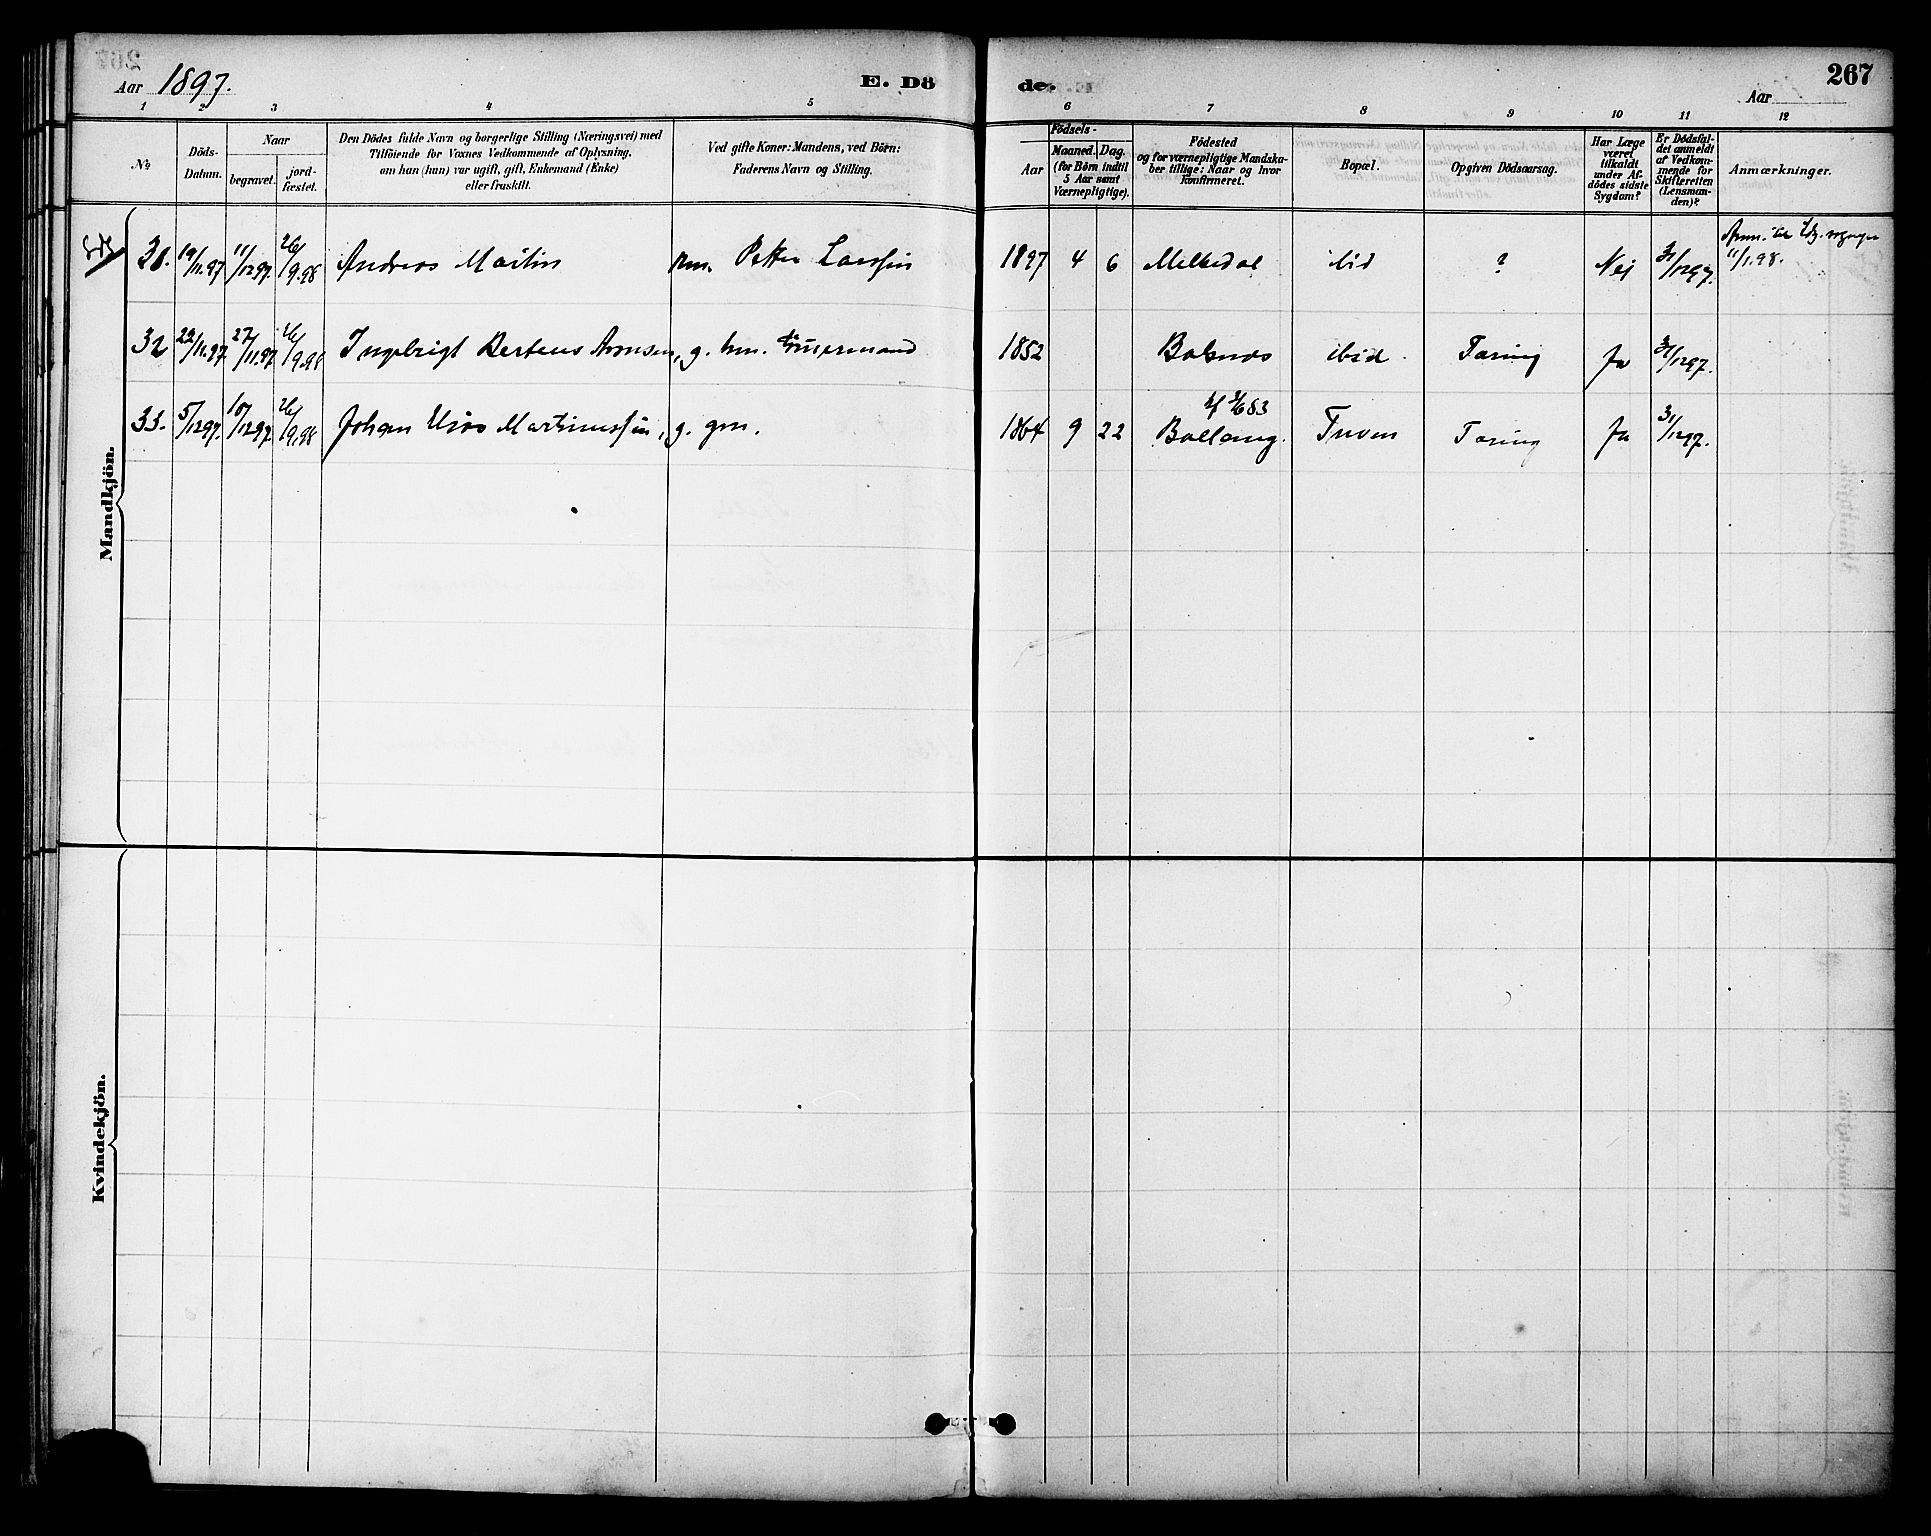 Aar 1897.
E. Dö
de.
267
Aar
1 2 3 4 5 6 7 8 9 10 11 12
No.
Döds-
Datum.
Naar
begravet.
jord-
fæstet.
Den Dödes fulde Navn og borgerlige Stilling (Næringsvei) med
Tilföiende for Voxnes Vedkommende af Oplysning,
om han (hun) var ugift, gift, Enkemand (Enke)
eller fraskilt.
Ved gifte Koner: Mandens, ved Börn:
Faderens Navn og Stilling.
Aar
Födsels-
Maaned. Dag.
(for Börn indtil
5 Aar samt
Værnepligtige).
Födested
og for værnepligtige Mandska-
ber tillige: Naar og hvor
konfirmeret.
Bopæl.
Opgiven Dödsaarsag.
Har Læge
været
tilkaldt
under Af-
dödes sidste
Sygdom?
Er Dödsfal-
det anmeldt
af Vedkom-
mende for
Skifteretten
(Lensman-
den)?
Anmærkninger.
Mandkjön.
31. 19/11.97 11/1297. 26/9.98 Andreas Martin Petter Larssen 1897 4 6 Melkedal ibid ? Nej 31/1297. 11/1.98.
32 22/11.97 27/11.97 26/9.98 Ingebrigt Berteus Aronsen, g. 1852 ibid. Tæring Ja 31/1297.
33. 5/1297. 10/1297. 26/9.98 Johan Martinussen, g. gm. 1864 9 22 Ballang. Tæring Ja 31/1297.
Kvindekjön.